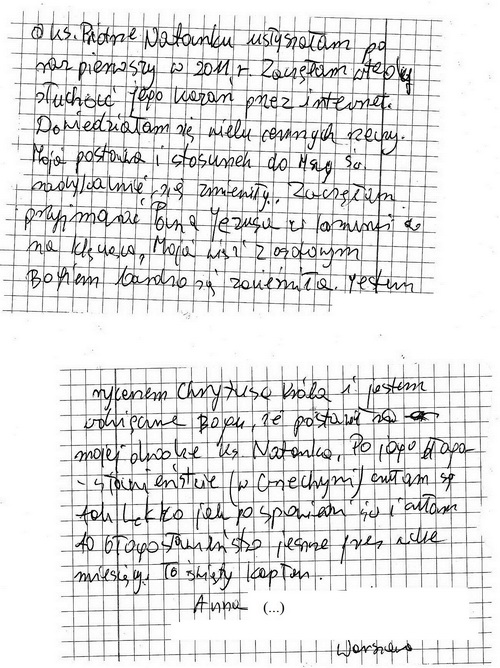 O ks. Piotrze Natanku usłyszałam po
raz pierwszy w 2011 r. Zaczęłam wtedy
słuchać Jego kazań przez internet.
Dowiedziałam się wielu cennych rzeczy.
Moja postawa i stosunek do Mszy św.
radykalnie się zmieniły. Zaczęłam
przyjmować Pana Jezusa w komunii św
na klęcząco, Moja więź z osobowym
Bogiem bardzo się zacieśniła. Jestem
rycerzem Chrystusa Króla i jestem
wdzięczna Bogu, że postawił na
mojej drodze ks. Natanka. Po jego błogo-
-sławieństwie (w Grzechyni) czułam się
tak lekko jak po spowiedzi św i czułam
to błogosławieństwo jeszcze przez
miesięcy. To święty kapłan.
Anna (...)
Warszawa